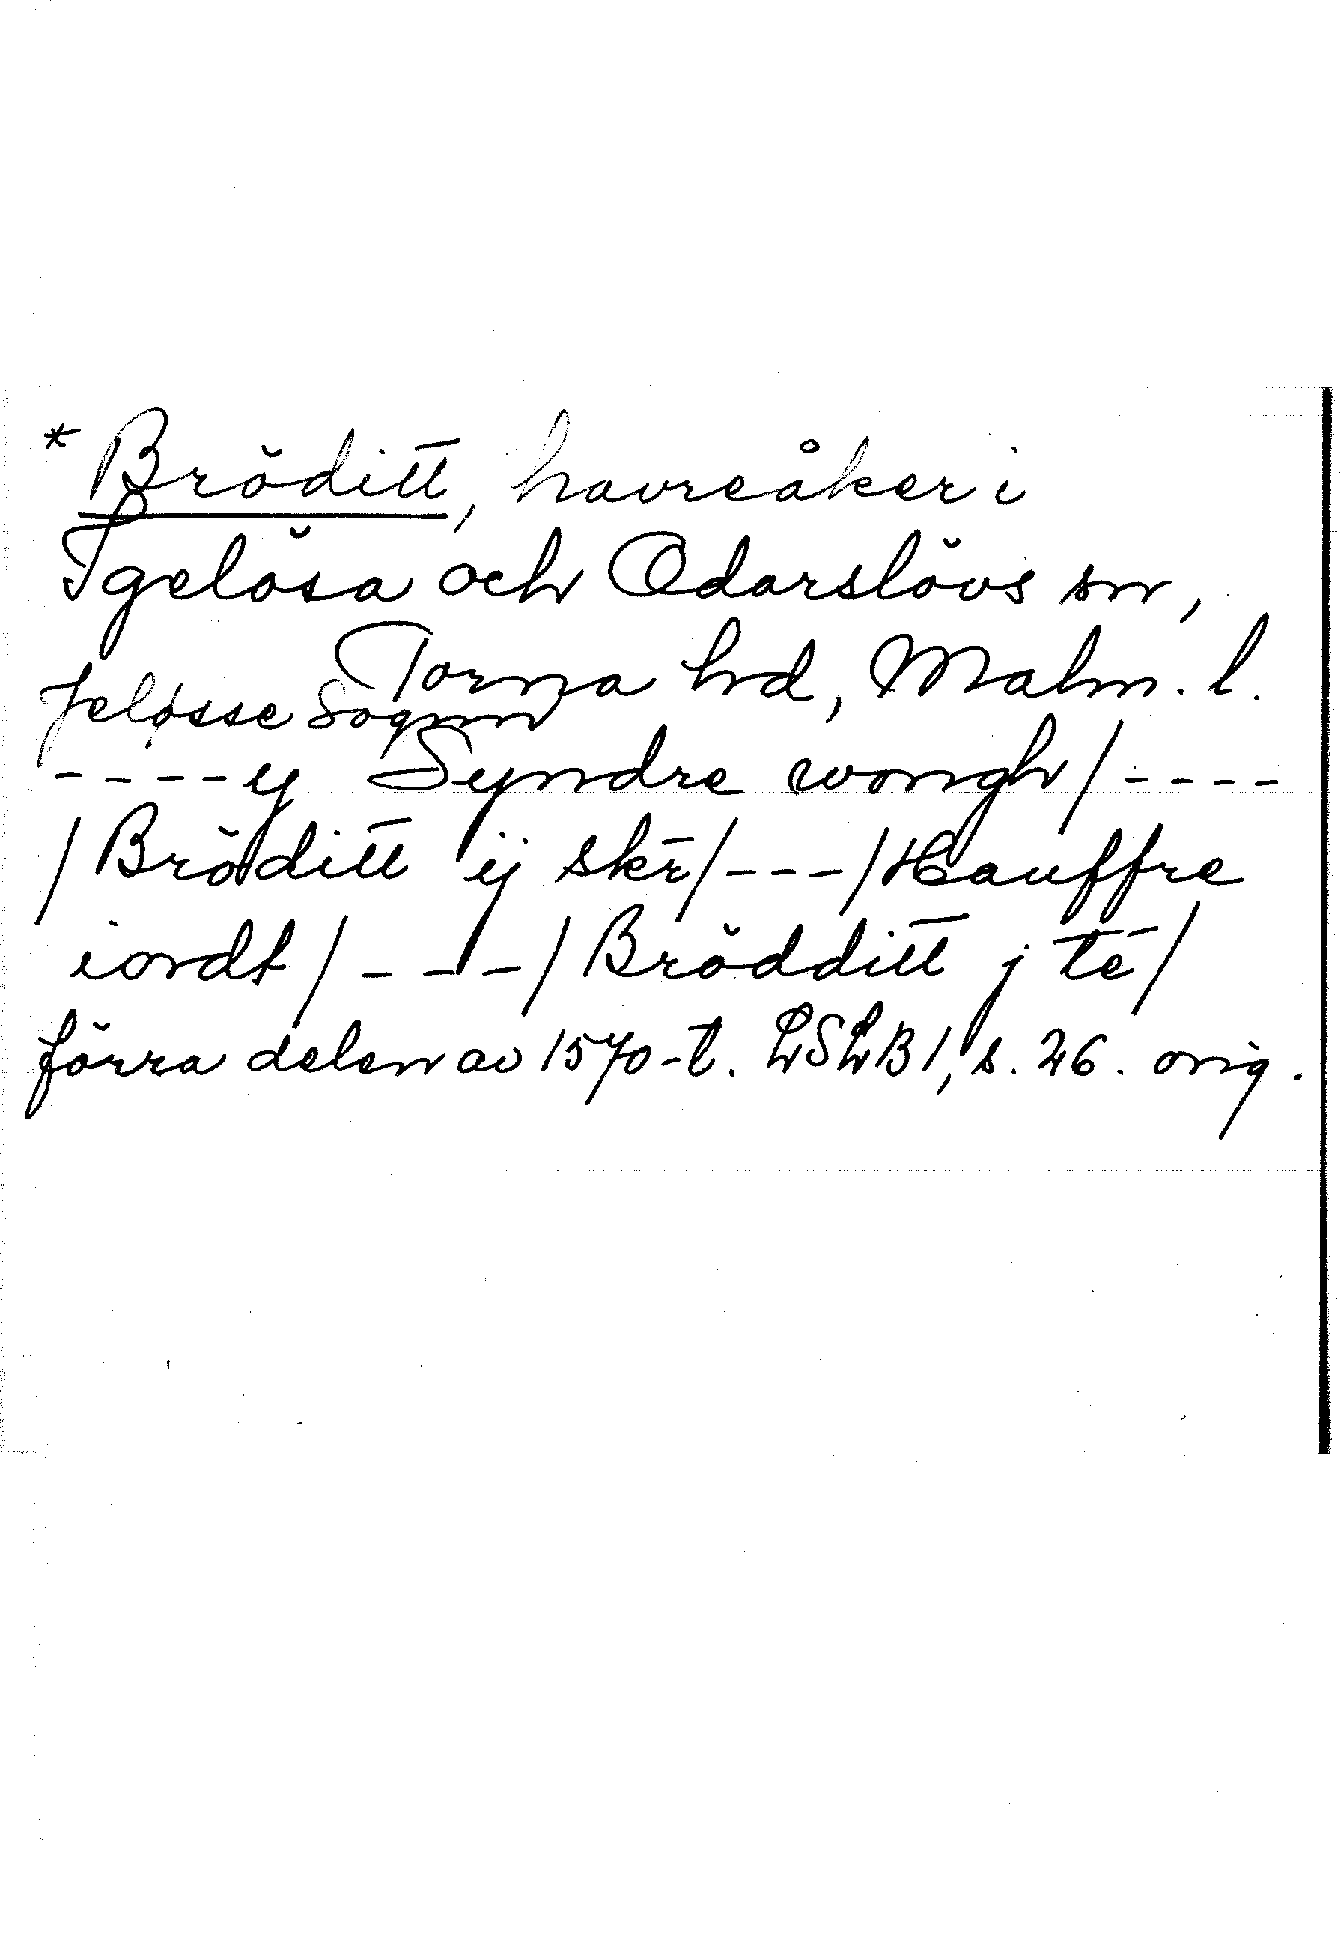 * Bröditt, havreåker i
Igelösa och Odarslövs snr,
Torna hd, Malm. l.
Jeløsse Sognn
----y Syndre wongh/----
/Bröditt ij skr̄/---/Hauffre
iordt/---/Brödditt j te/
förra delen av 1570-t. LSLB 1, s. 26. orig.